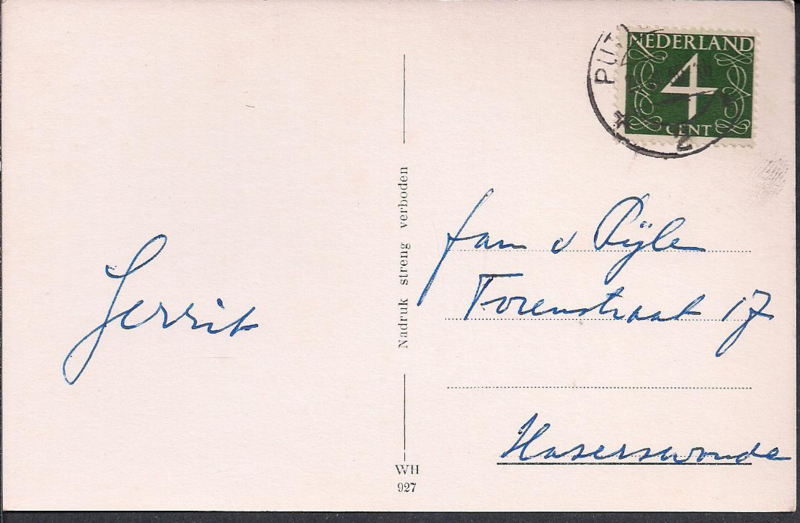 NEDERLAND
4
CENT
PUT
2
Gerrit
Nadruk streng verboden
WH
927
fam v Rijle
Torenstraat 17
Haserswoude